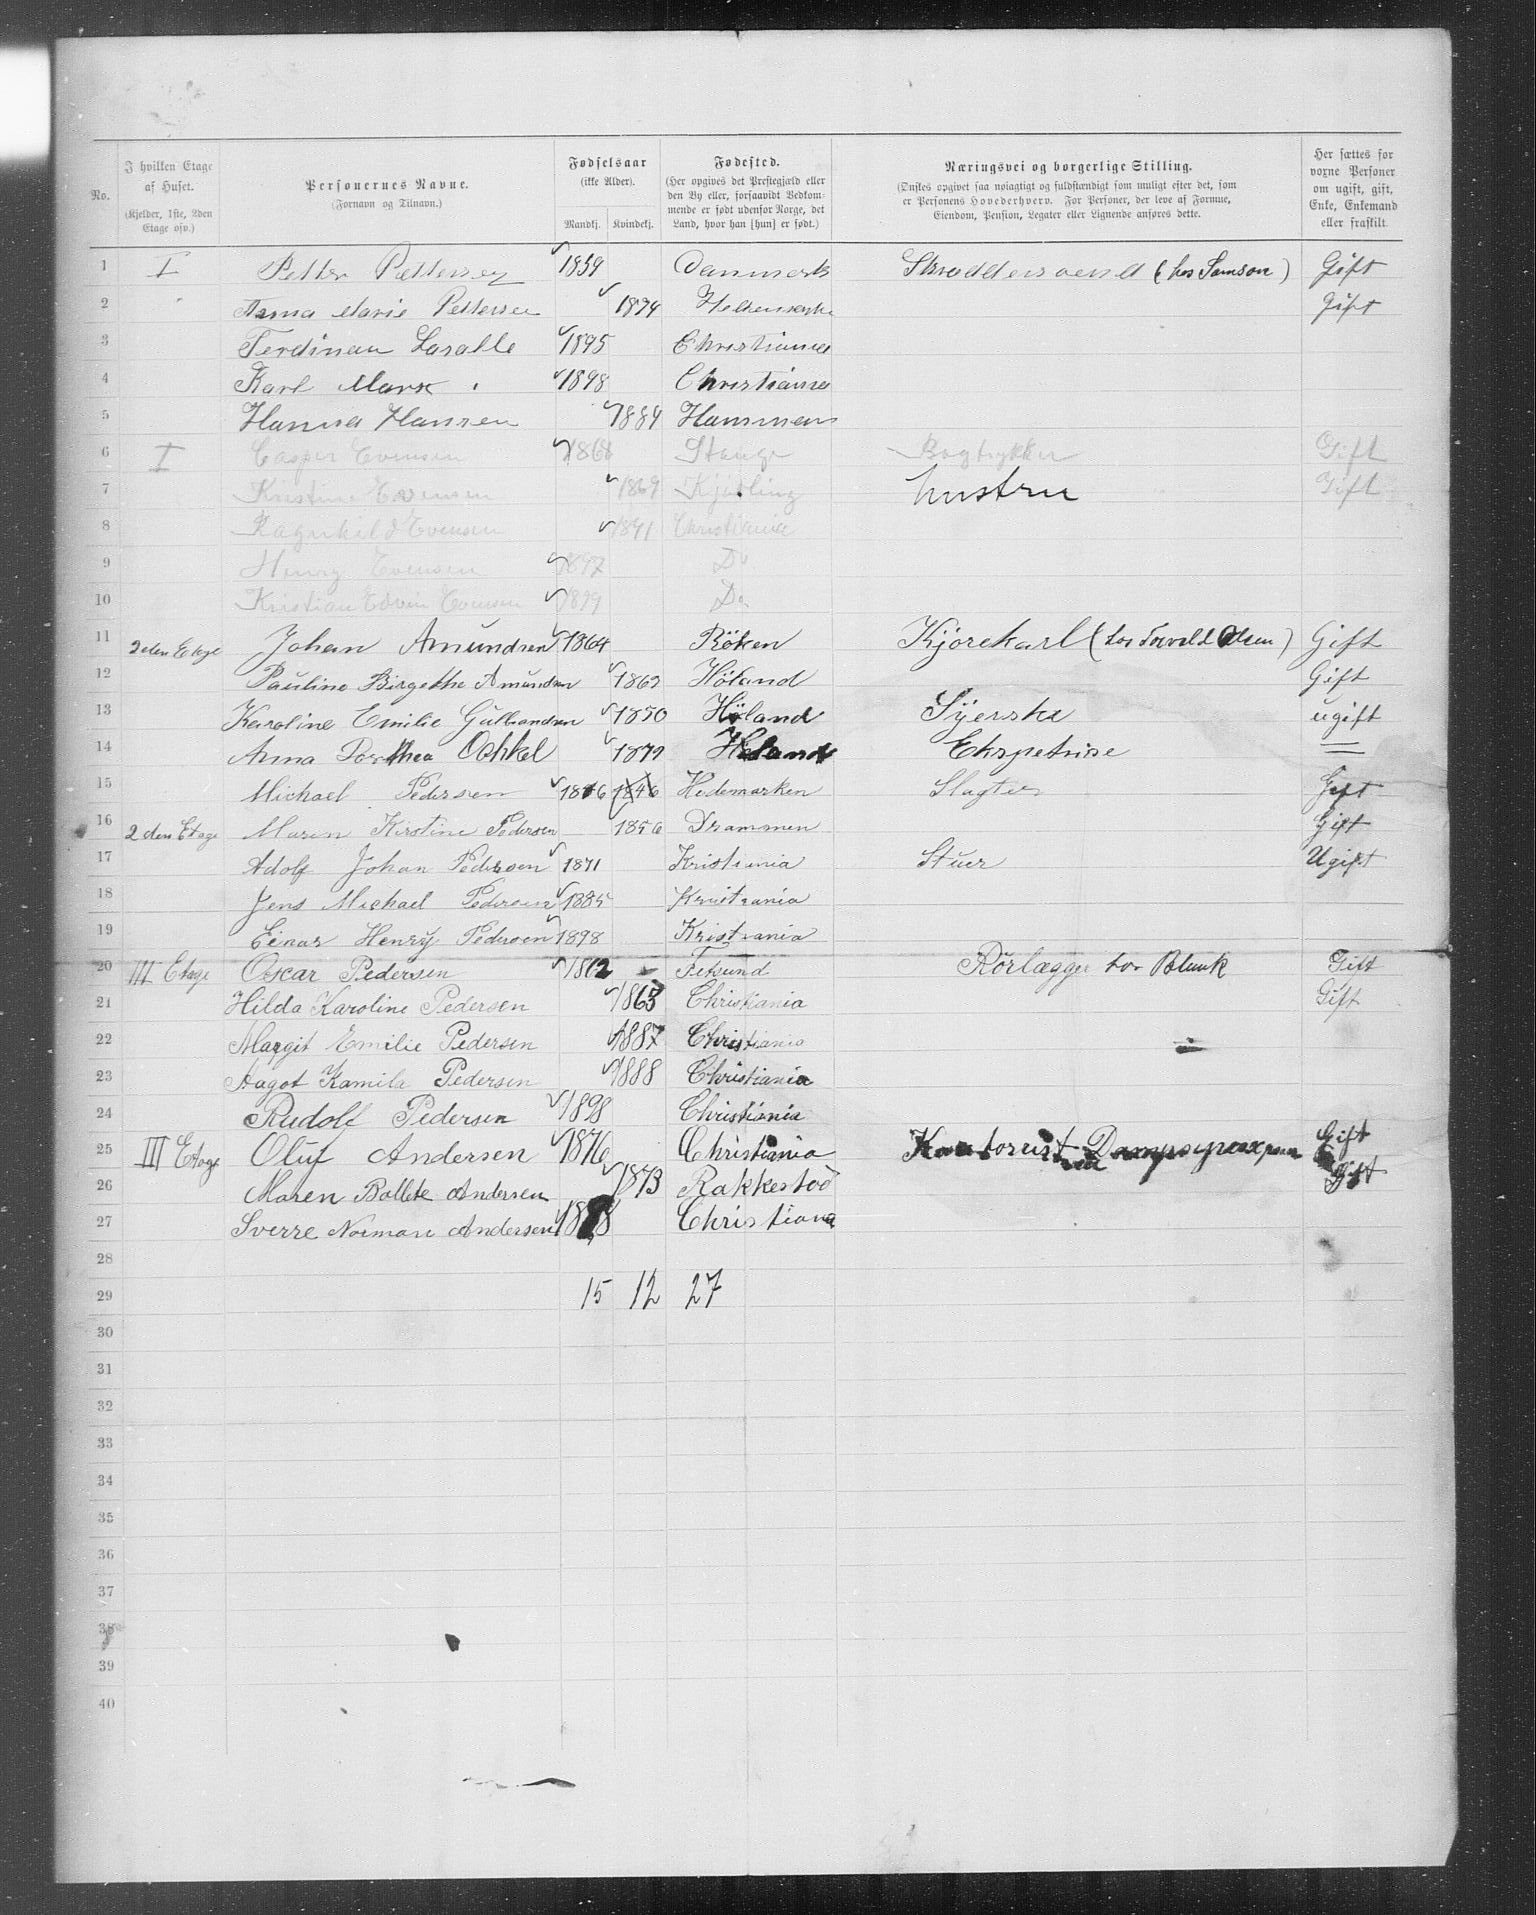 No.
I hvilken Etage af Huset. (Kjelder, 1ste, 2den Etage osv.)
Personernes Navne. (Fornavn og Tilnavn.)
Fødselsaar (ikke Alder). Mandkj. Kvindekj.
Fødested. (Her opgives det Prestegjæld eller den By eller, forsaavidt Vedkommende er født udenfor Norge, det Land, hvor han [hun] er født.)
Næringsvei og borgerlige Stilling. (Ønskes opgivet saa nøiagtigt og fuldstændigt som muligt efter det, som er Personens Hovederhverv. For Personer, der leve af Formue, Eiendom, Pension, Legater eller Lignende anføres dette.
Her sættes for voxne Personer om ugift, gift, Enke, Enkemand eller fraskilt.
1 I Petter Pettersen 1859 Danmark Skræddersvend (hos Samson) Gift
2 Anna Marie Pettersen 1874 Gift
3 Ferdinan Lasalle 1895 Christiania
4 Karl Marx 1898 Christiania
5 Hanna Hansen 1884
6 I Casper Evensen 1868 Stange Bogtrykker Gift
7 Kristine Evensen 1869 hustru Gift
8 Ragnhild Evensen 1891 Christiania
9 Henry Evensen 1897 Do
10 Kristian Edvin Evensen 1899 Do.
11 2den Etage Johan Amundsen 1864 Röken Kjørekarl (hos Torvald Olsen) Gift
12 Pauline Birgethe Amundsen 1869 Höland Gift
13 Karoline Emilie Gulbrandsen 1850 Höland Syerske ugift
14 Anna Dorthea 1879 Höland =
15 Michael Pedersen 1846 1846 Hedemarken Slagter Gift
16 2den Etage Maren Kirstine Pedersen 1856 Drammen Gift
17 Adolf Johan Pedersen 1871 Kristiania Stuer Ugift
18 Jens Michael Pedersen 1885 Kristiania
19 Einar Henry Pedersen 1898 Kristiania
20 III Etage Oscar Pedersen 1862 Fetsund Rörlægger hos Blunk Gift
21 Hilda Karoline Pedersen 1863 Christiania Gift
22 Margit Emilie Pedersen 1887 Christiania
23 Aagot Kamila Pedersen 1888 Christiania
24 Rudolf Pedersen 1898 Christiania
25 III Etage Oluf Andersen 1876 Christiania Kontorist Gift
26 Maren Bollete Andersen 1873 Rakkestad Gift
27 Sverre Norman Andersen 1898 Christiania
28
29 15 12 27
30
31
32
33
34
35
36
37
38
39
40